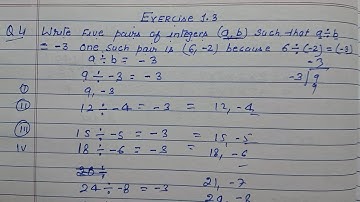 Exercise 1.3
Q4 Write Five pairs of integers (a, b) such that a÷b
= -3 one such pair is (6, -2) because 6÷(-2) = (-3)
a ÷ b = -3
-3
9 ÷ -3 = -3
-3 9
(i) 9, -3
(ii) 12 ÷ -4 = -3 = 12, -4
(iii) 15 ÷ -5 = -3 = 15, -5
iv 18 ÷ -6 = -3 = 18, -6
21, -7
24 ÷ -8 = -3
24, -8